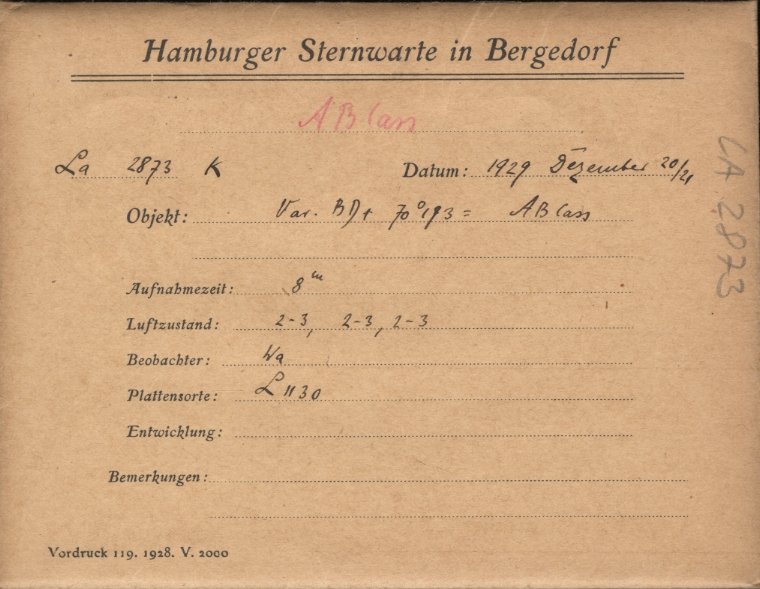 Hamburger Sternwarte in Bergedorf
AB Cass
La 2873 K
Datum: 1929 Dezember 20/21
Objekt: Var. BD + 70°193 = AB Cass
Aufnahmezeit: 8m
Luftzustand: 2-3, 2-3, 2-3
Beobachter: Wa
Plattensorte: L 1130
Entwicklung:
Bemerkungen:
Vordruck 119. 1928. V. 2000
LA 2873